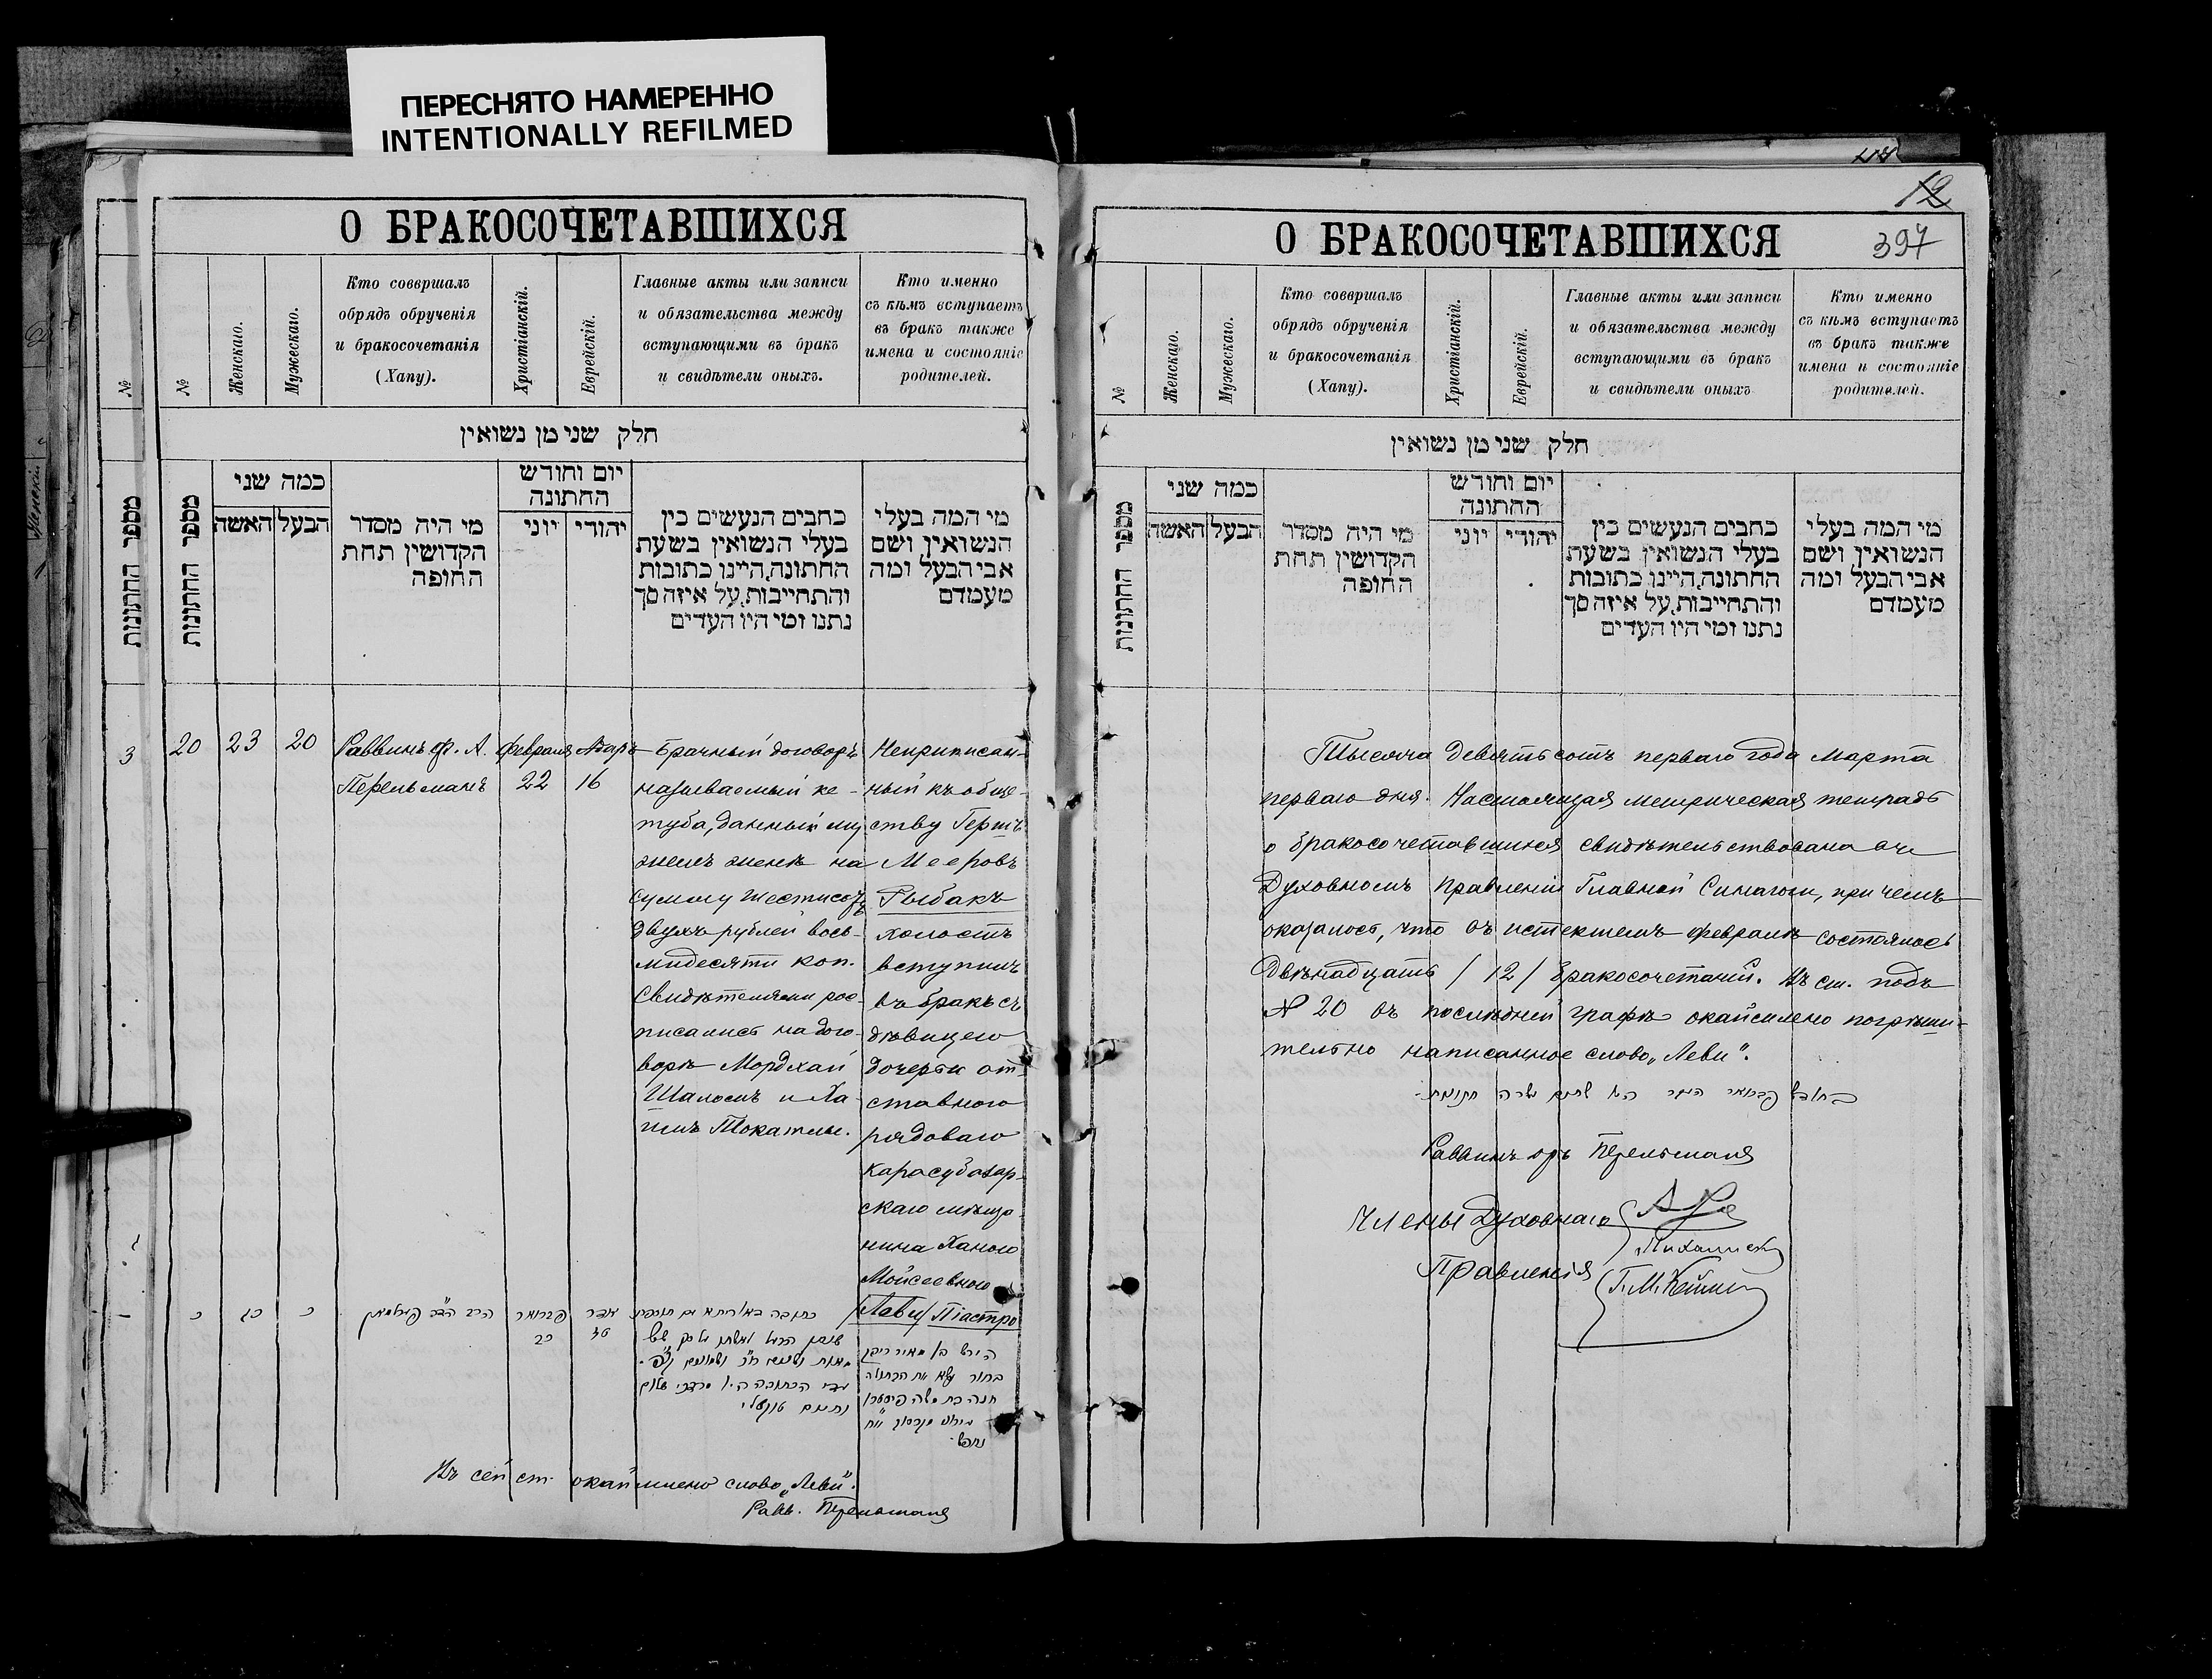 ПЕРЕСНЯТО НАМЕРЕННО
INTENTIONALLY REFILMED
О БРАКОСОЧЕТАВШИХСЯ
№
№
Женскаго.
Мужескаго.
Кто совершалъ
обрядъ обрученія
и бракосочетанія
(Хапу).
Христіанскій.
Еврейскій.
Главные акты или записи
и обязательства между
вступающими въ бракъ
и свидѣтели оныхъ.
Кто именно
съ кѣмъ вступаетъ
въ бракъ также
имена и состояніе
родителей.
חלק שני מן נשואין
מספר החתונות
מספר החתונות
כמה שני
האשה
הבעל
מי היה מסדר
הקדושין תחת
החופה
יום וחודש
החתונה
יוני
יהודי
כתבים הנעשים בין
בעלי הנשואין בשעת
החתונה, היינו כתובות
והתחייבות, על איזה סך
נתנו ומי היו העדים
מי המה בעלי
הנשואין ושם
אבי הבעל ומה
מעמדם
3
20
23
20
Раввинъ Ф. А.
Перельманъ
Февраля
22
Адаръ
16
Брачный договоръ
называемый ке-
туба, данный му-
жемъ женѣ на
сумму шестисотъ
двухъ рублей вось-
мидесяти коп.
Свидѣтелями рос-
писались на дого-
ворѣ Мордхай
Шаломъ и Ха-
имъ Токатлы.
Неприписан-
ный къ обще-
ству Гершъ
Мееровъ
Рыбакъ
холостъ
вступилъ
въ бракъ съ
дѣвицею
дочерью от-
ставного
рядоваго
Карасубазар-
скаго мѣща-
нина Ханою
Моисеевною
/Леви/ Піастро
כ
כג
כ
פברואר
כב
אדר
Въ сей ст. окаймлено слово „Леви“.
Равв. Перельманъ
12
О БРАКОСОЧЕТАВШИХСЯ
397
№
Женскаго.
Мужескаго.
Кто совершалъ
обрядъ обрученія
и бракосочетанія
(Хапу).
Христіанскій.
Еврейскій.
Главные акты или записи
и обязательства между
вступающими въ бракъ
и свидѣтели оныхъ
Кто именно
съ кѣмъ вступаетъ
въ бракъ также
имена и состояніе
родителей.
חלק שני מן נשואין
מספר החתונות
כמה שני
האשה
הבעל
מי היה מסדר
הקדושין תחת
החופה
יום וחודש
החתונה
יוני
יהודי
כתבים הנעשים בין
בעלי הנשואין בשעת
החתונה, היינו כתובות
והתחייבות, על איזה סך
נתנו ומי היו העדים
מי המה בעלי
הנשואין ושם
אבי הבעל ומה
מעמדם
Тысяча девятьсотъ перваго года Марта
перваго дня. Настоящая метрическая тетрадь
о бракосочетавшихся свидѣтельствована въ
Духовномъ Правленіи Главной Синагоги, при чемъ
оказалось, что въ истекшемъ февралѣ состоялось
Двѣнадцать /12/ бракосочетаній. Въ ст. подъ
№ 20 въ послѣдней графѣ окаймлено погрѣши-
тельно написанное слово „Леви“.
Раввинъ Перельманъ
Члены Духовнаго
Правленія